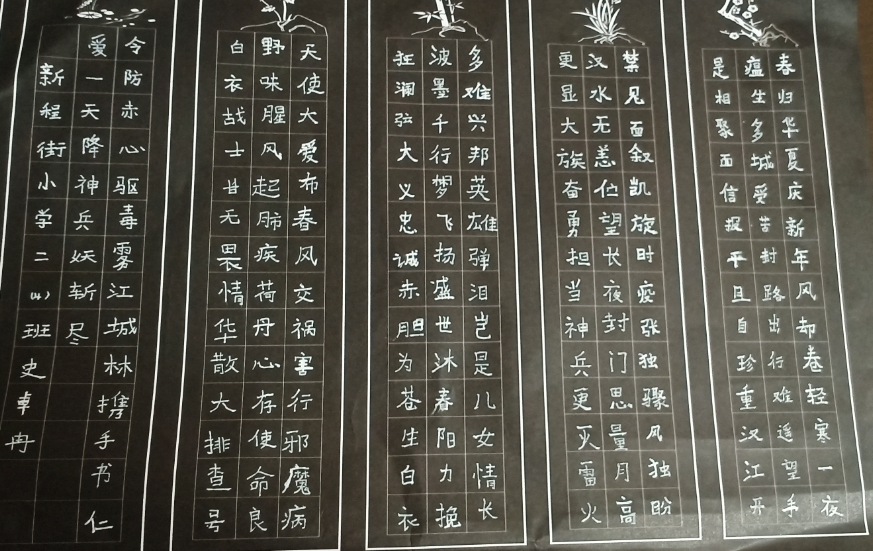 春归华夏庆新年风却卷轻寒一夜
瘟生多城受苦封路出行难遥望手
是相聚面信报平且自珍重汉江开
禁见面叙凯旋时疫张独骤风独盼
汉水无恙他望长夜封门思量月高
更显大族奋勇担当神兵更灭雷火
多难兴邦英雄弹泪岂是儿女情长
波墨千行梦飞扬盛世沐春阳力挽
狂澜弦大义忠诚赤胆为苍生白衣
天使大爱布春风交祸害行邪魔病
野味腥风起肺疾荷丹心存使命良
白衣战士甘无畏情华散大排查号
令防赤心驱毒雾江城林携手书仁
爱一天降神兵妖斩尽
新程街小学二(4)班史卓冉